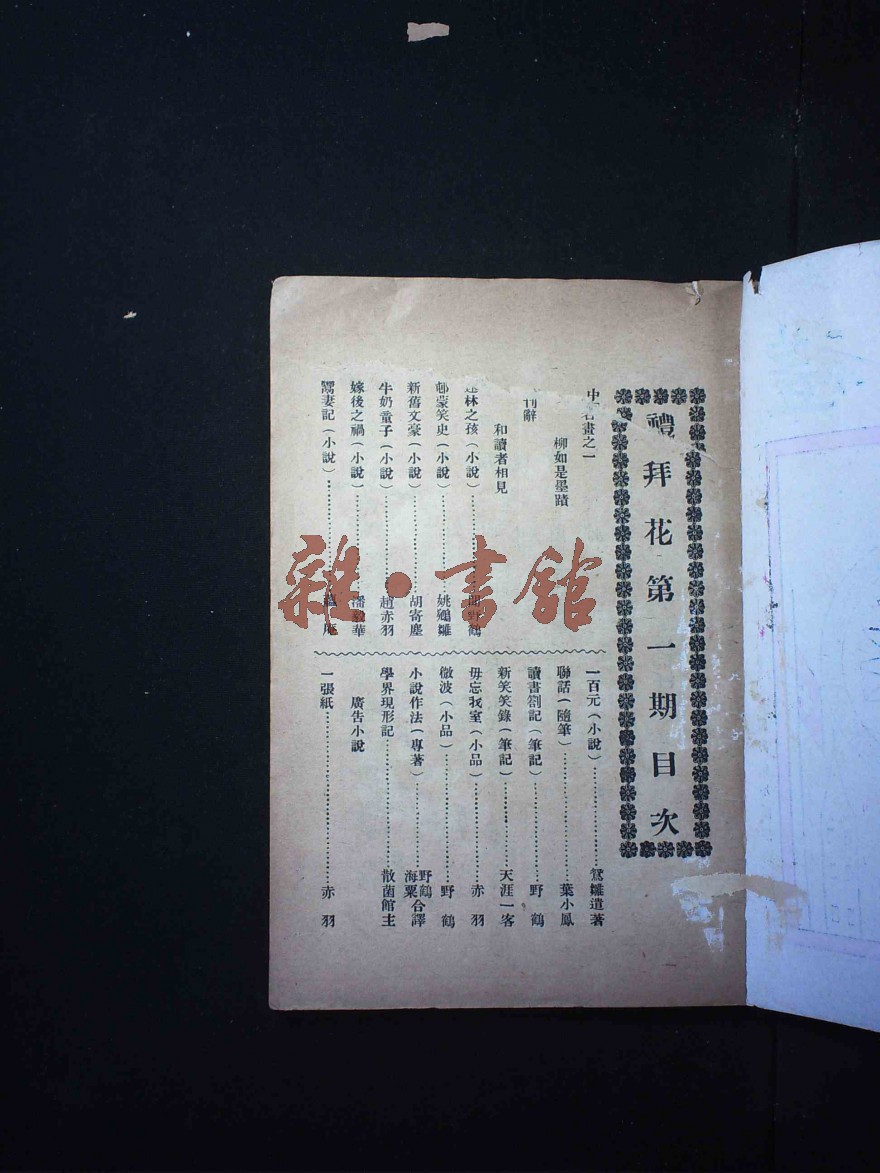 禮拜花第一期目次
中畫之一
柳如是墨蹟
刊辭
和讀者相見
林之孩（小說）………野鶴
邨蒙笑史（小說）………姚鵷雛
新舊文豪（小說）………胡寄塵
牛奶童子（小說）………趙赤羽
嫁後之禍（小說）………潘華
鬻妻記（小說）………
一百元（小說）………鴛雛遺著
聯話（隨筆）………葉小鳳
讀書劄記（筆記）………野鶴
新笑笑錄（筆記）………天涯一客
毋忘我室（小品）………赤羽
微波（小品）………野鶴
小說作法（專著）………野鶴海粟合譯
學界現形記………散菌館主
廣告小說
一張紙………赤羽
雜·書館